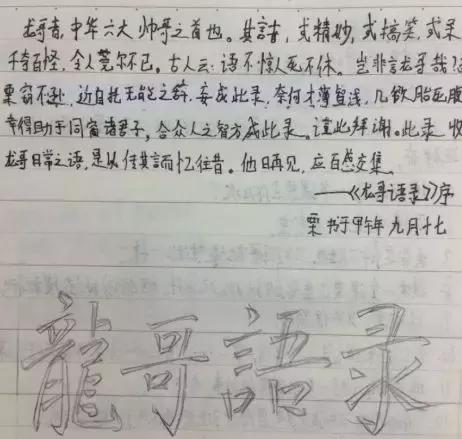 龙哥者,中华六大帅哥之首也。其言,或精妙,或搞笑,或呆
千奇百怪,令人莞尔不已。古人云:语不惊人死不休。岂非言龙哥哉?
栗窃不逊,近自托无能之辞,妄成此录,奈何才薄智浅,几欲胎死腹
幸得助于同窗诸君子,合众人之智方成此录。谨此拜谢。此录 收
龙哥日常之语,是以传其言而忆往昔。他日再见,应百感交集。
——《龙哥语录》序
栗 书于甲午年 九月十七
龍哥語录